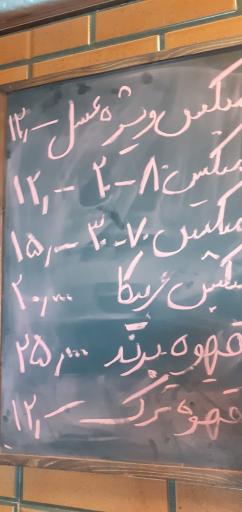 میکس ویژه عسل ۱۲٫-
میکس ۸۰-۲۰ ۱۲٫-
میکس ۷۰-۳۰ ۱۵٫-
میکس عربیکا ۲۰٫۰۰۰
قهوه برند ۲۵٫۰۰۰
قهوه ترک ۱۲٫-